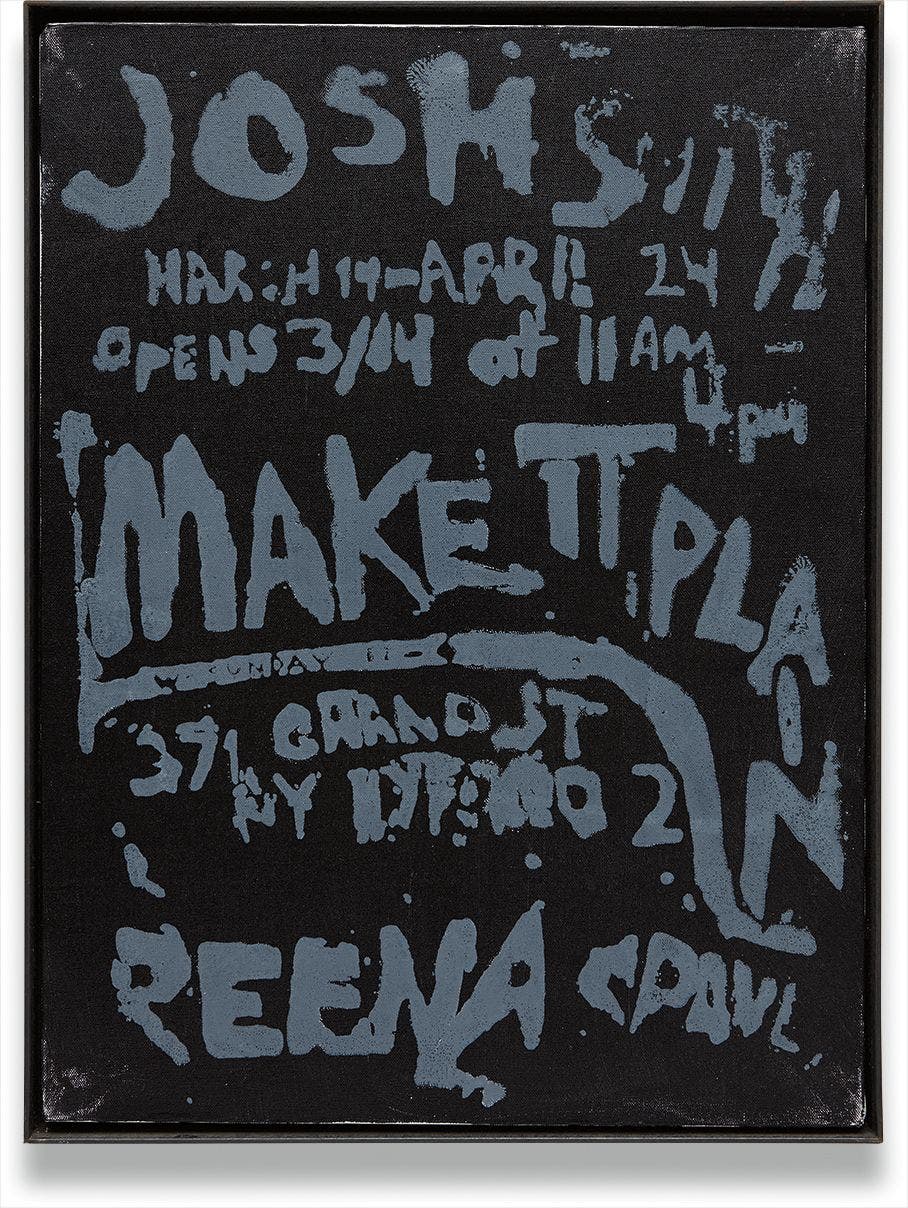 JOSH SMITH
MARCH 14-APRIL 24
OPENS 3/14 at 11AM-
4PM
MAKE IT PLAIN
SUNDAY
371 GRAND ST
NY NY 10002
REENA SPAUL